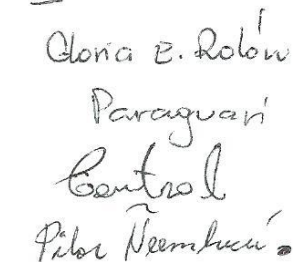 Gloria E. Rolón
Paraguari
Central
Pilar Ñeembucú.